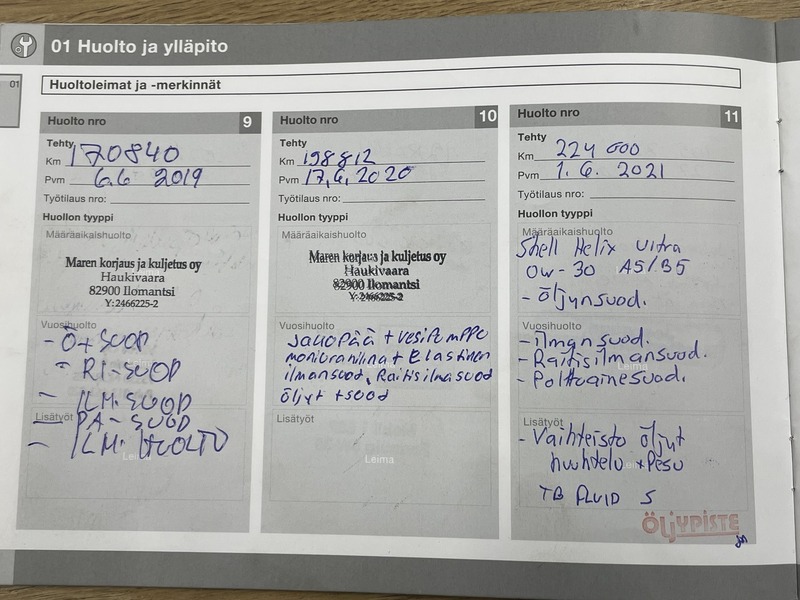 01 Huolto ja ylläpito
01
Huoltoleimat ja -merkinnät
Huolto nro 9
Tehty
Km 170840
Pvm 6.6 2019
Työtilaus nro:
Huollon tyyppi
Määräaikaishuolto
Maren korjaus ja kuljetus oy
Haukivaara
82900 Ilomantsi
Y:2466225-2
Vuosihuolto
- Ö+SUOD
- RI-SUOD
- ILM.SUOD
Lisätyöt
- PA-SUOD
- ILM.HUOLTO
Leima
Huolto nro 10
Tehty
Km 198812
Pvm 17,6,2020
Työtilaus nro:
Huollon tyyppi
Määräaikaishuolto
Maren korjaus ja kuljetus oy
Haukivaara
82900 Ilomantsi
Y:2466225-2
Vuosihuolto
Jakopää + Vesipumppu
moniurahihna + Elastinen
ilmansuod, Raitisilmasuod
öljyt + suod
Lisätyöt
Leima
Huolto nro 11
Tehty
Km 224 000
Pvm 1.6. 2021
Työtilaus nro:
Huollon tyyppi
Määräaikaishuolto
Shell Helix Ultra
0w-30 A5/B5
- öljynsuod.
Vuosihuolto
- ilmansuod.
- Raitisilmansuod.
- Polttoainesuod.
Leima
Lisätyöt
- Vaihteisto öljyt
huuhtelu + Pesu
TB FLUID S
ÖLJYPISTE